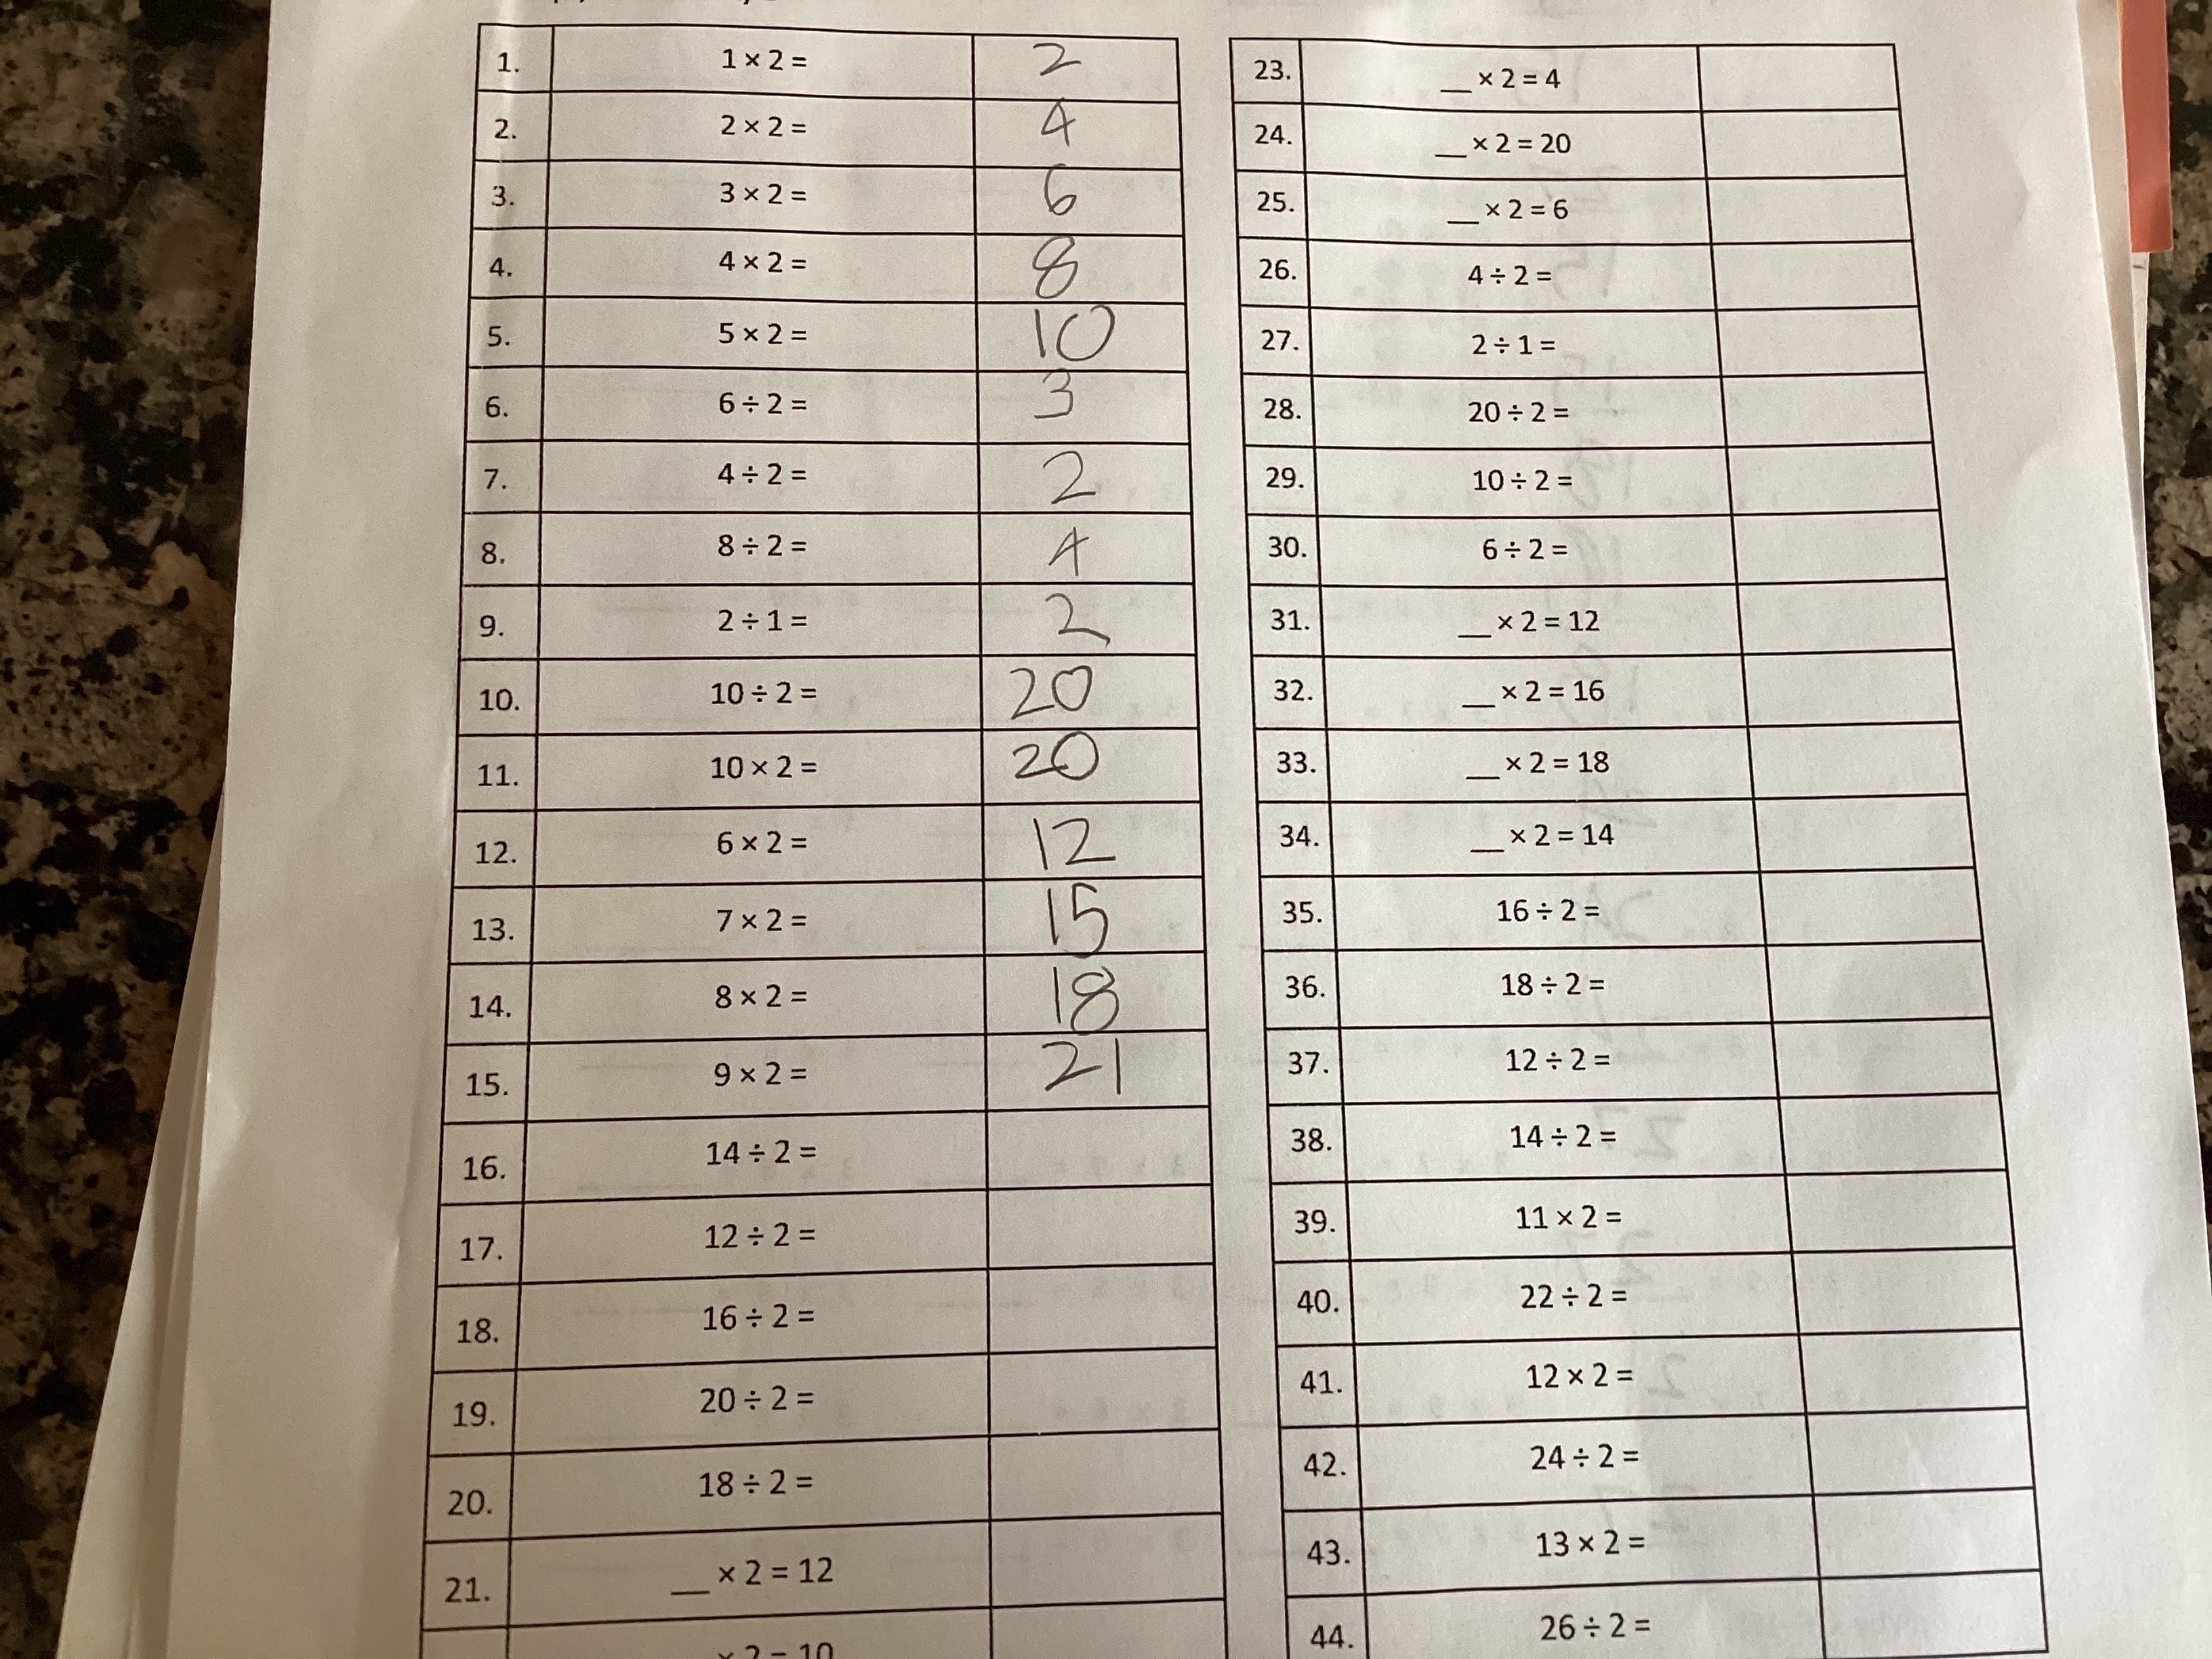 1. 1 × 2 = 2
2. 2 × 2 = 4
3. 3 × 2 = 6
4. 4 × 2 = 8
5. 5 × 2 = 10
6. 6 ÷ 2 = 3
7. 4 ÷ 2 = 2
8. 8 ÷ 2 = 4
9. 2 ÷ 1 = 2
10. 10 ÷ 2 = 20
11. 10 × 2 = 20
12. 6 × 2 = 12
13. 7 × 2 = 15
14. 8 × 2 = 18
15. 9 × 2 = 21
16. 14 ÷ 2 =
17. 12 ÷ 2 =
18. 16 ÷ 2 =
19. 20 ÷ 2 =
20. 18 ÷ 2 =
21. __ × 2 = 12
× 2 = 10
23. __ × 2 = 4
24. __ × 2 = 20
25. __ × 2 = 6
26. 4 ÷ 2 =
27. 2 ÷ 1 =
28. 20 ÷ 2 =
29. 10 ÷ 2 =
30. 6 ÷ 2 =
31. __ × 2 = 12
32. __ × 2 = 16
33. __ × 2 = 18
34. __ × 2 = 14
35. 16 ÷ 2 =
36. 18 ÷ 2 =
37. 12 ÷ 2 =
38. 14 ÷ 2 =
39. 11 × 2 =
40. 22 ÷ 2 =
41. 12 × 2 =
42. 24 ÷ 2 =
43. 13 × 2 =
44. 26 ÷ 2 =